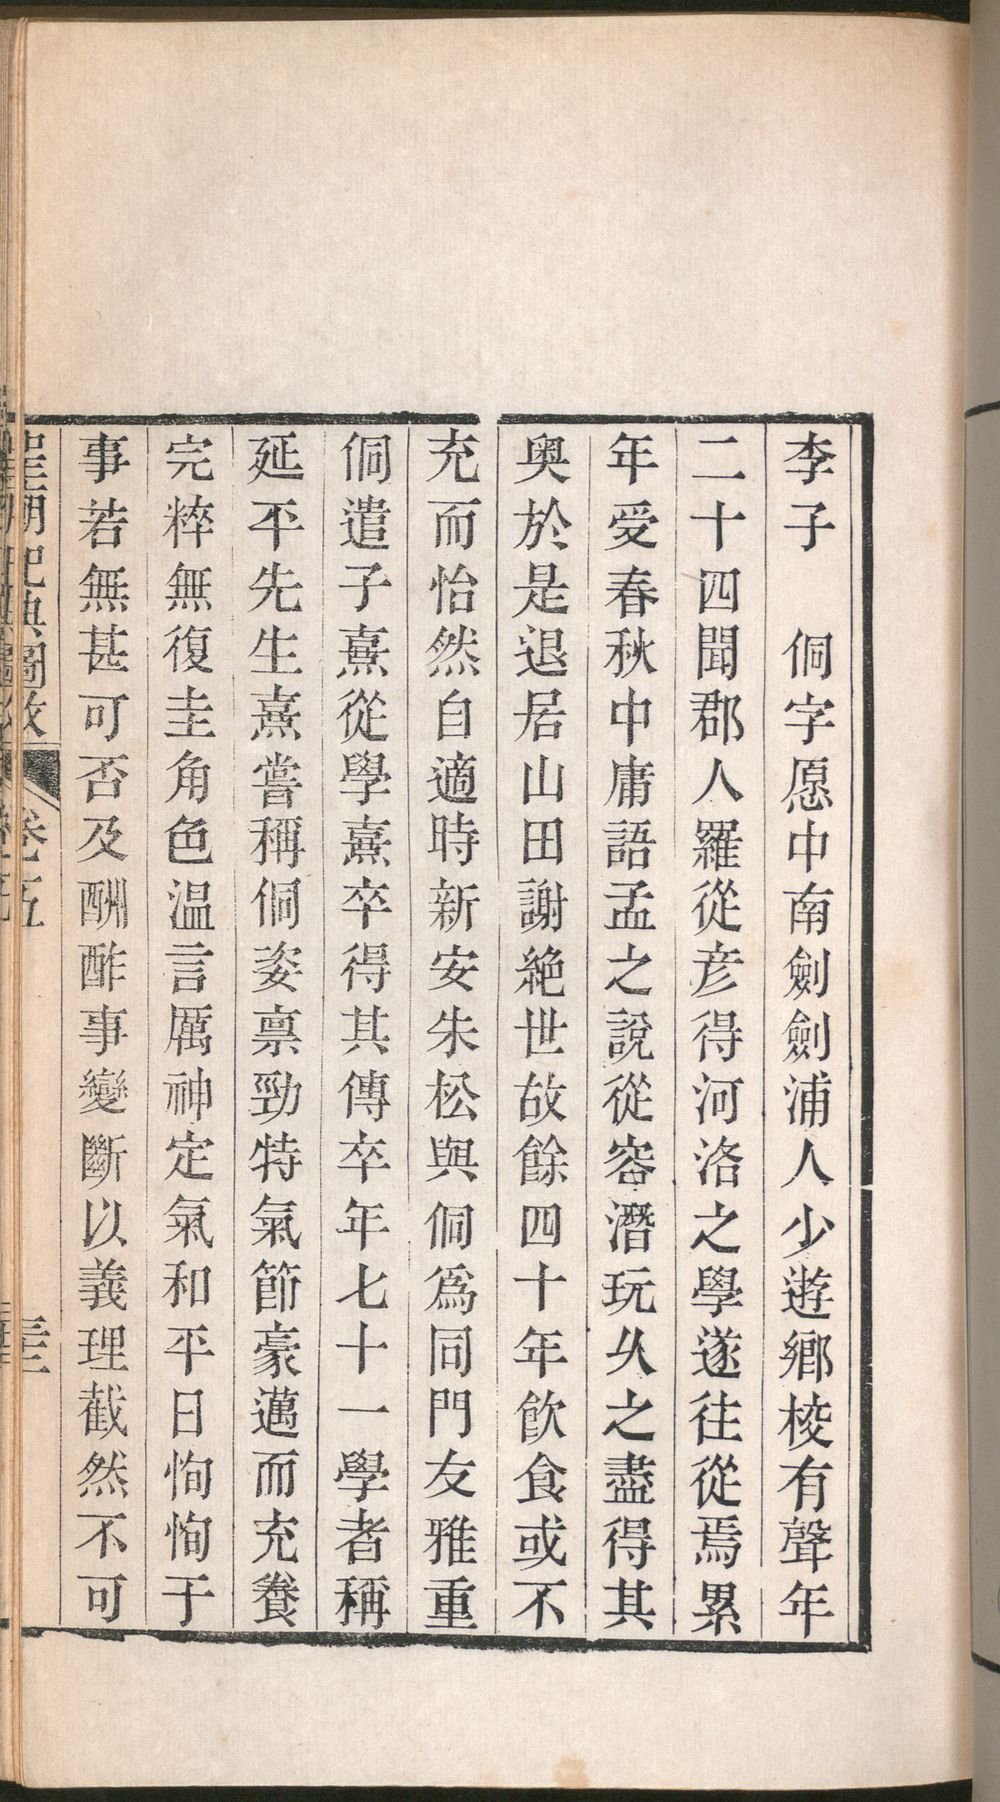 李子　侗字愿中南劍劍浦人少遊鄉校有聲年
二十四聞郡人羅從彥得河洛之學遂往從焉累
年受春秋中庸語孟之說從容潛玩久之盡得其
奧於是退居山田謝絶世故餘四十年飲食或不
充而怡然自適時新安朱松與侗爲同門友雅重
侗遣子熹從學熹卒得其傳卒年七十一學者稱
延平先生熹嘗稱侗姿禀勁特氣節豪邁而充養
完粹無復圭角色温言厲神定氣和平日恂恂于
事若無甚可否及酬酢事變斷以義理截然不可
聖朝祀典圖攷　卷五　三十二